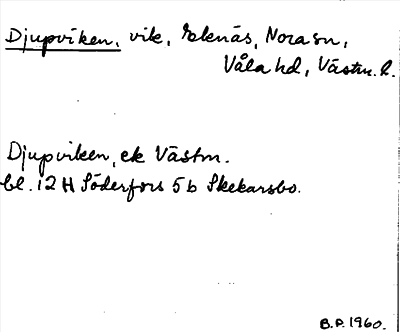 Djupviken, vik, Ekenäs, Nora sn,
Våla hd, Västm. l.
Djupviken, ek Västm.
bl. 12 H Söderfors 5 b Skekarsbo.
B.P. 1960.